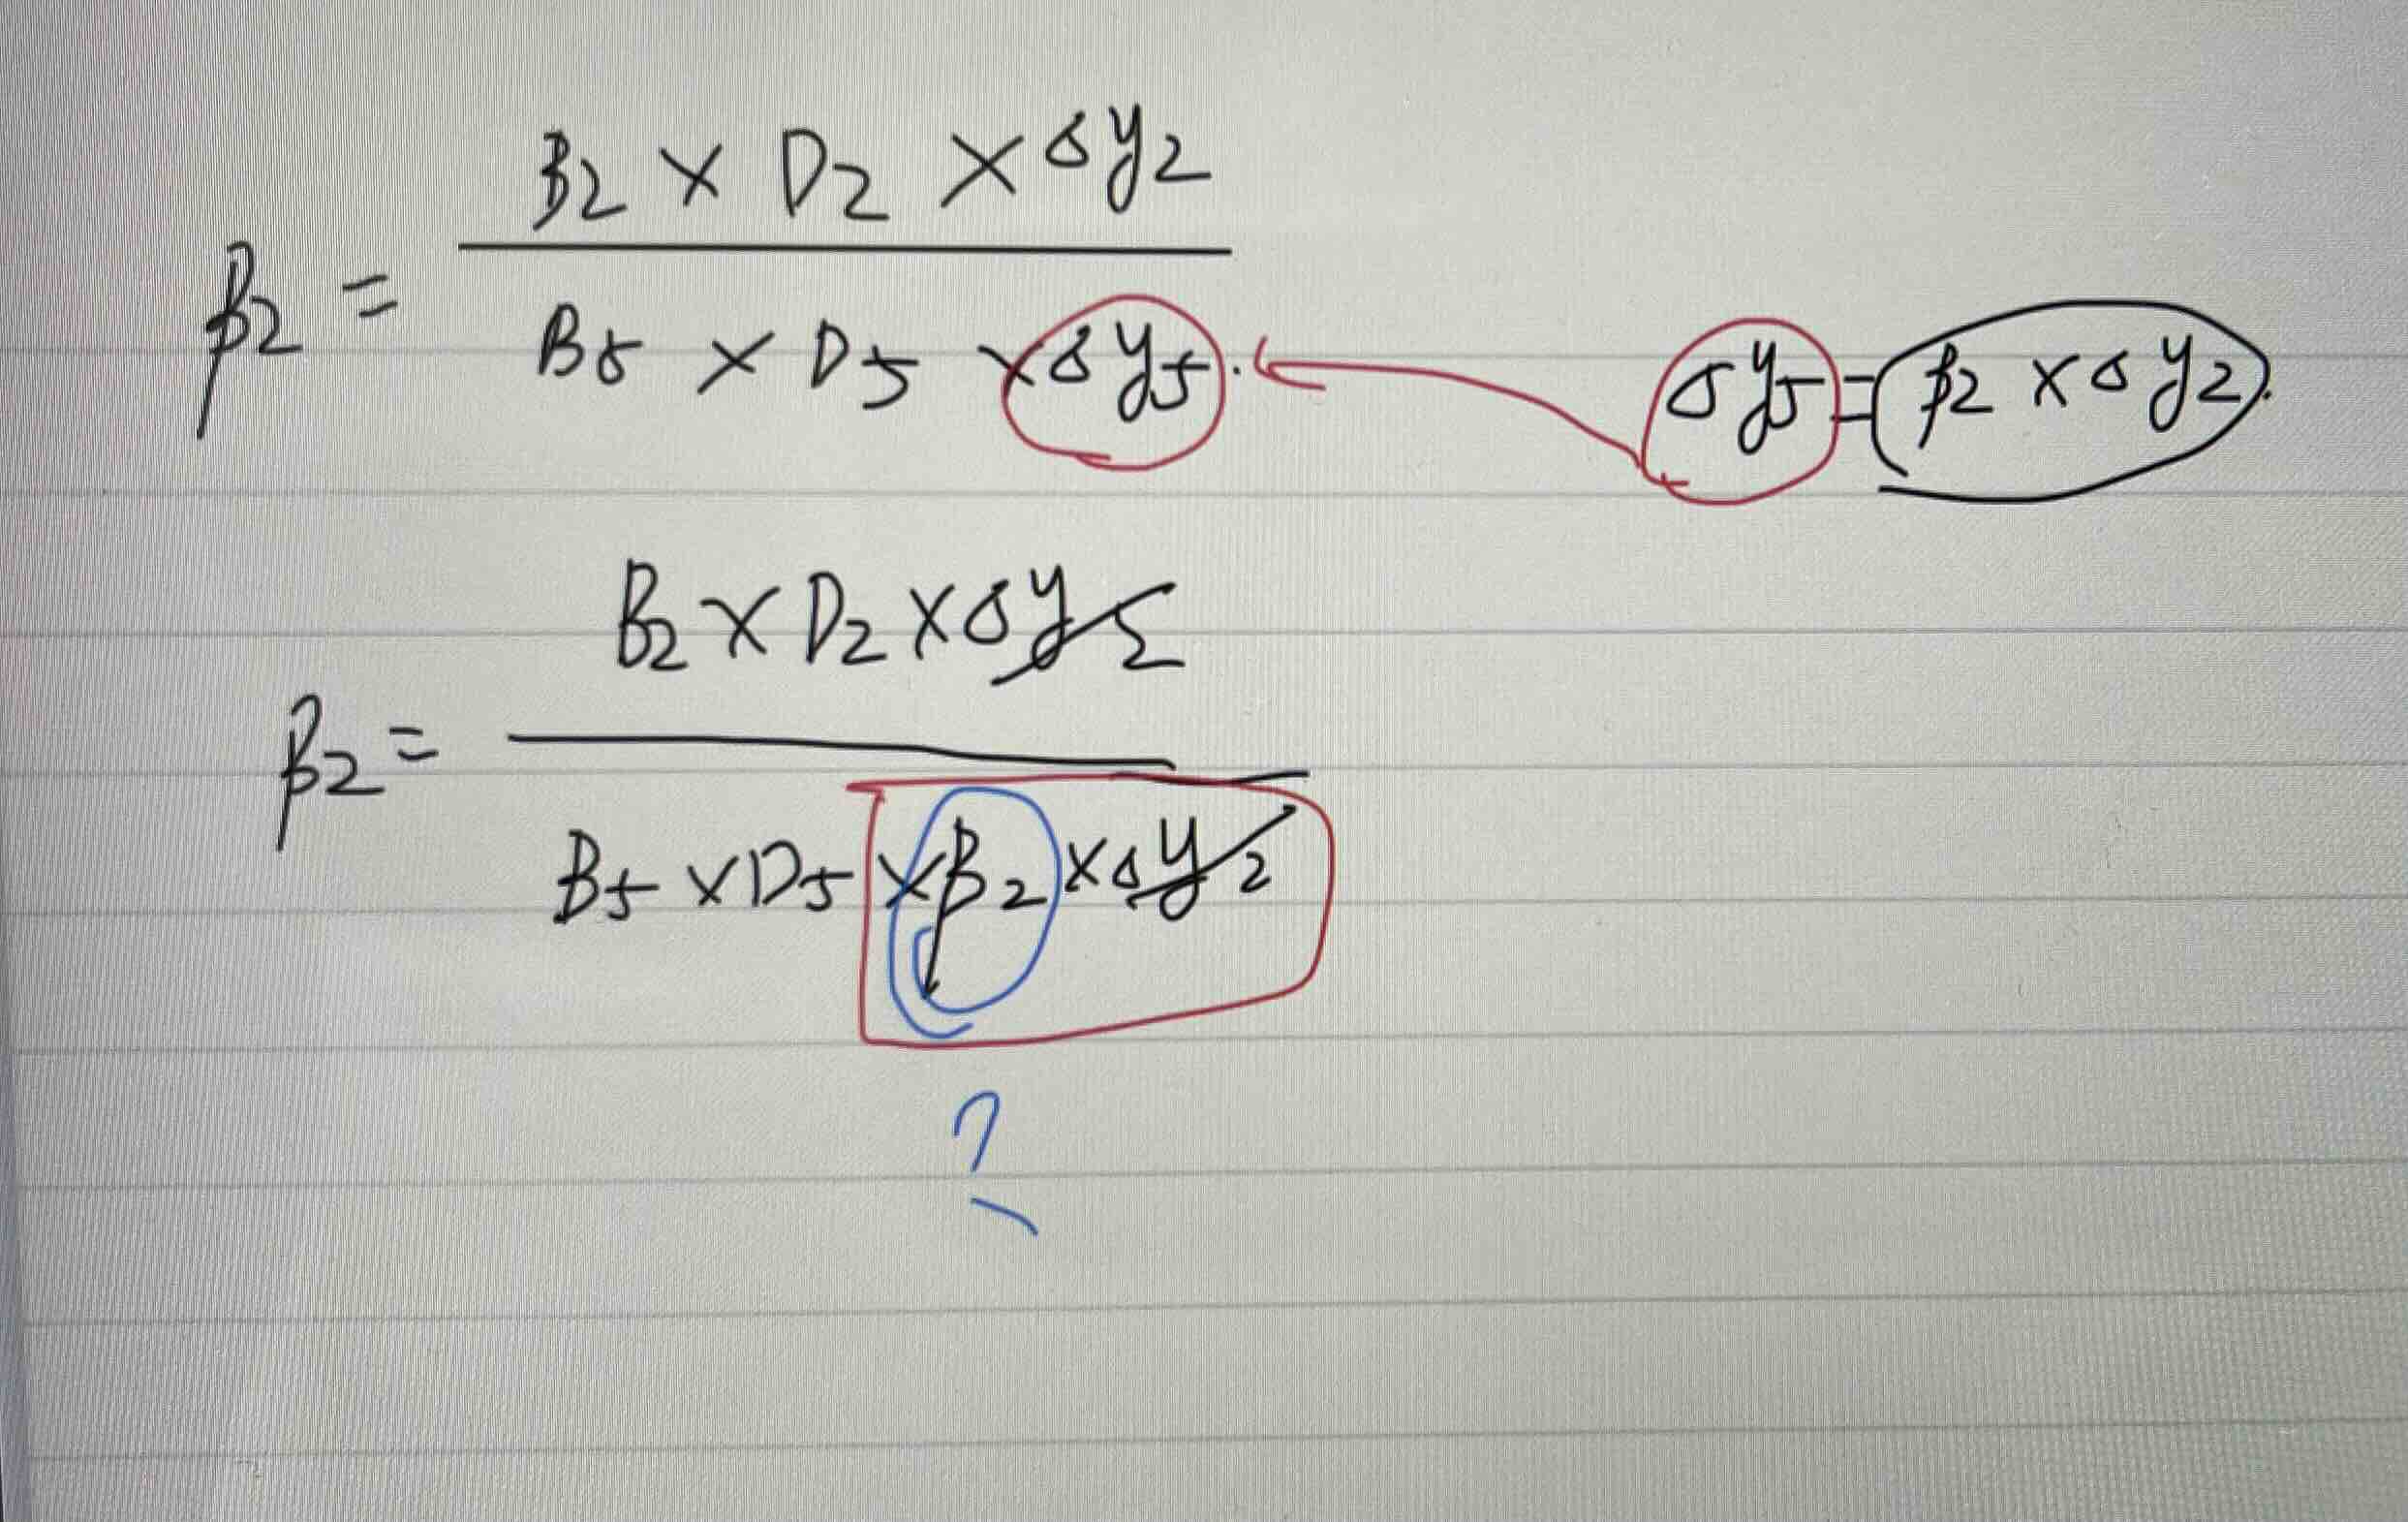 β2 = B2 × D2 × Δy2
B5 × D5 × Δy5.
Δy5 = β2 × Δy2.
β2 = B2 × D2 × Δy2
B5 × D5 × β2 × Δy2
?